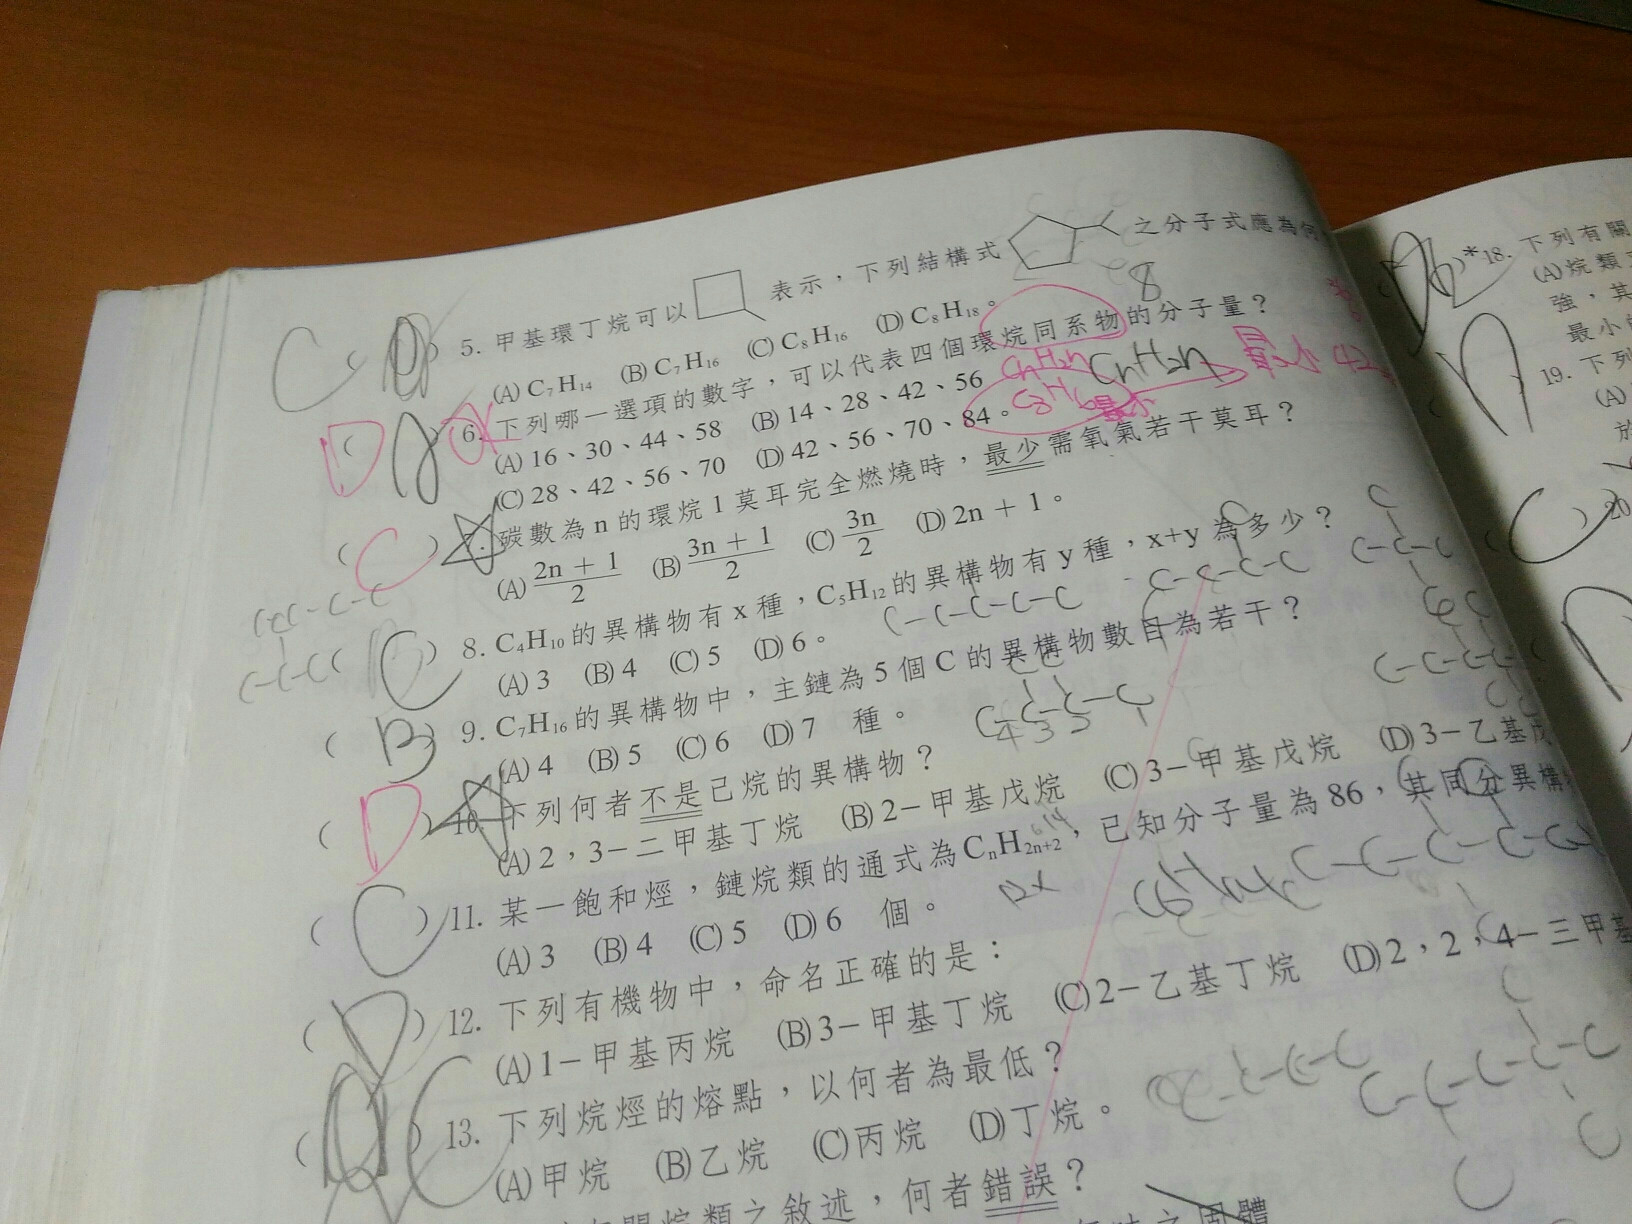 5. 甲基環丁烷可以 表示，下列結構式 之分子式應為何
(A) C₇H₁₄ (B) C₇H₁₆ (C) C₈H₁₆ (D) C₈H₁₈。
6. 下列哪一選項的數字，可以代表四個環烷同系物的分子量？
(A) 16、30、44、58 (B) 14、28、42、56
(C) 28、42、56、70 (D) 42、56、70、84。
碳數為 n 的環烷 1 莫耳完全燃燒時，最少需氧氣若干莫耳？
(A) (2n + 1)/2 (B) (3n + 1)/2 (C) 3n/2 (D) 2n + 1。
8. C₄H₁₀的異構物有 x 種，C₅H₁₂的異構物有 y 種，x+y 為多少？
(A) 3 (B) 4 (C) 5 (D) 6。
9. C₇H₁₆的異構物中，主鏈為 5 個 C 的異構物數目為若干？
(A) 4 (B) 5 (C) 6 (D) 7 種。
10. 下列何者不是己烷的異構物？
(A) 2，3－二甲基丁烷 (B) 2－甲基戊烷 (C) 3－甲基戊烷 (D) 3－乙基戊
11. 某一飽和烴，鏈烷類的通式為CₙH₂ₙ₊₂，已知分子量為 86，其同分異構
(A) 3 (B) 4 (C) 5 (D) 6 個。
12. 下列有機物中，命名正確的是：
(A) 1－甲基丙烷 (B) 3－甲基丁烷 (C) 2－乙基丁烷 (D) 2，2，4－三甲基
13. 下列烷烴的熔點，以何者為最低？
(A) 甲烷 (B) 乙烷 (C) 丙烷 (D) 丁烷。
烷類之敘述，何者錯誤？
之固體
*18. 下列有關
(A) 烷類
強，其
最小
19. 下列
(A)
20
C
D
C
C
B
D
C
D
C
8
CnH2n
CnH2n
最小 42